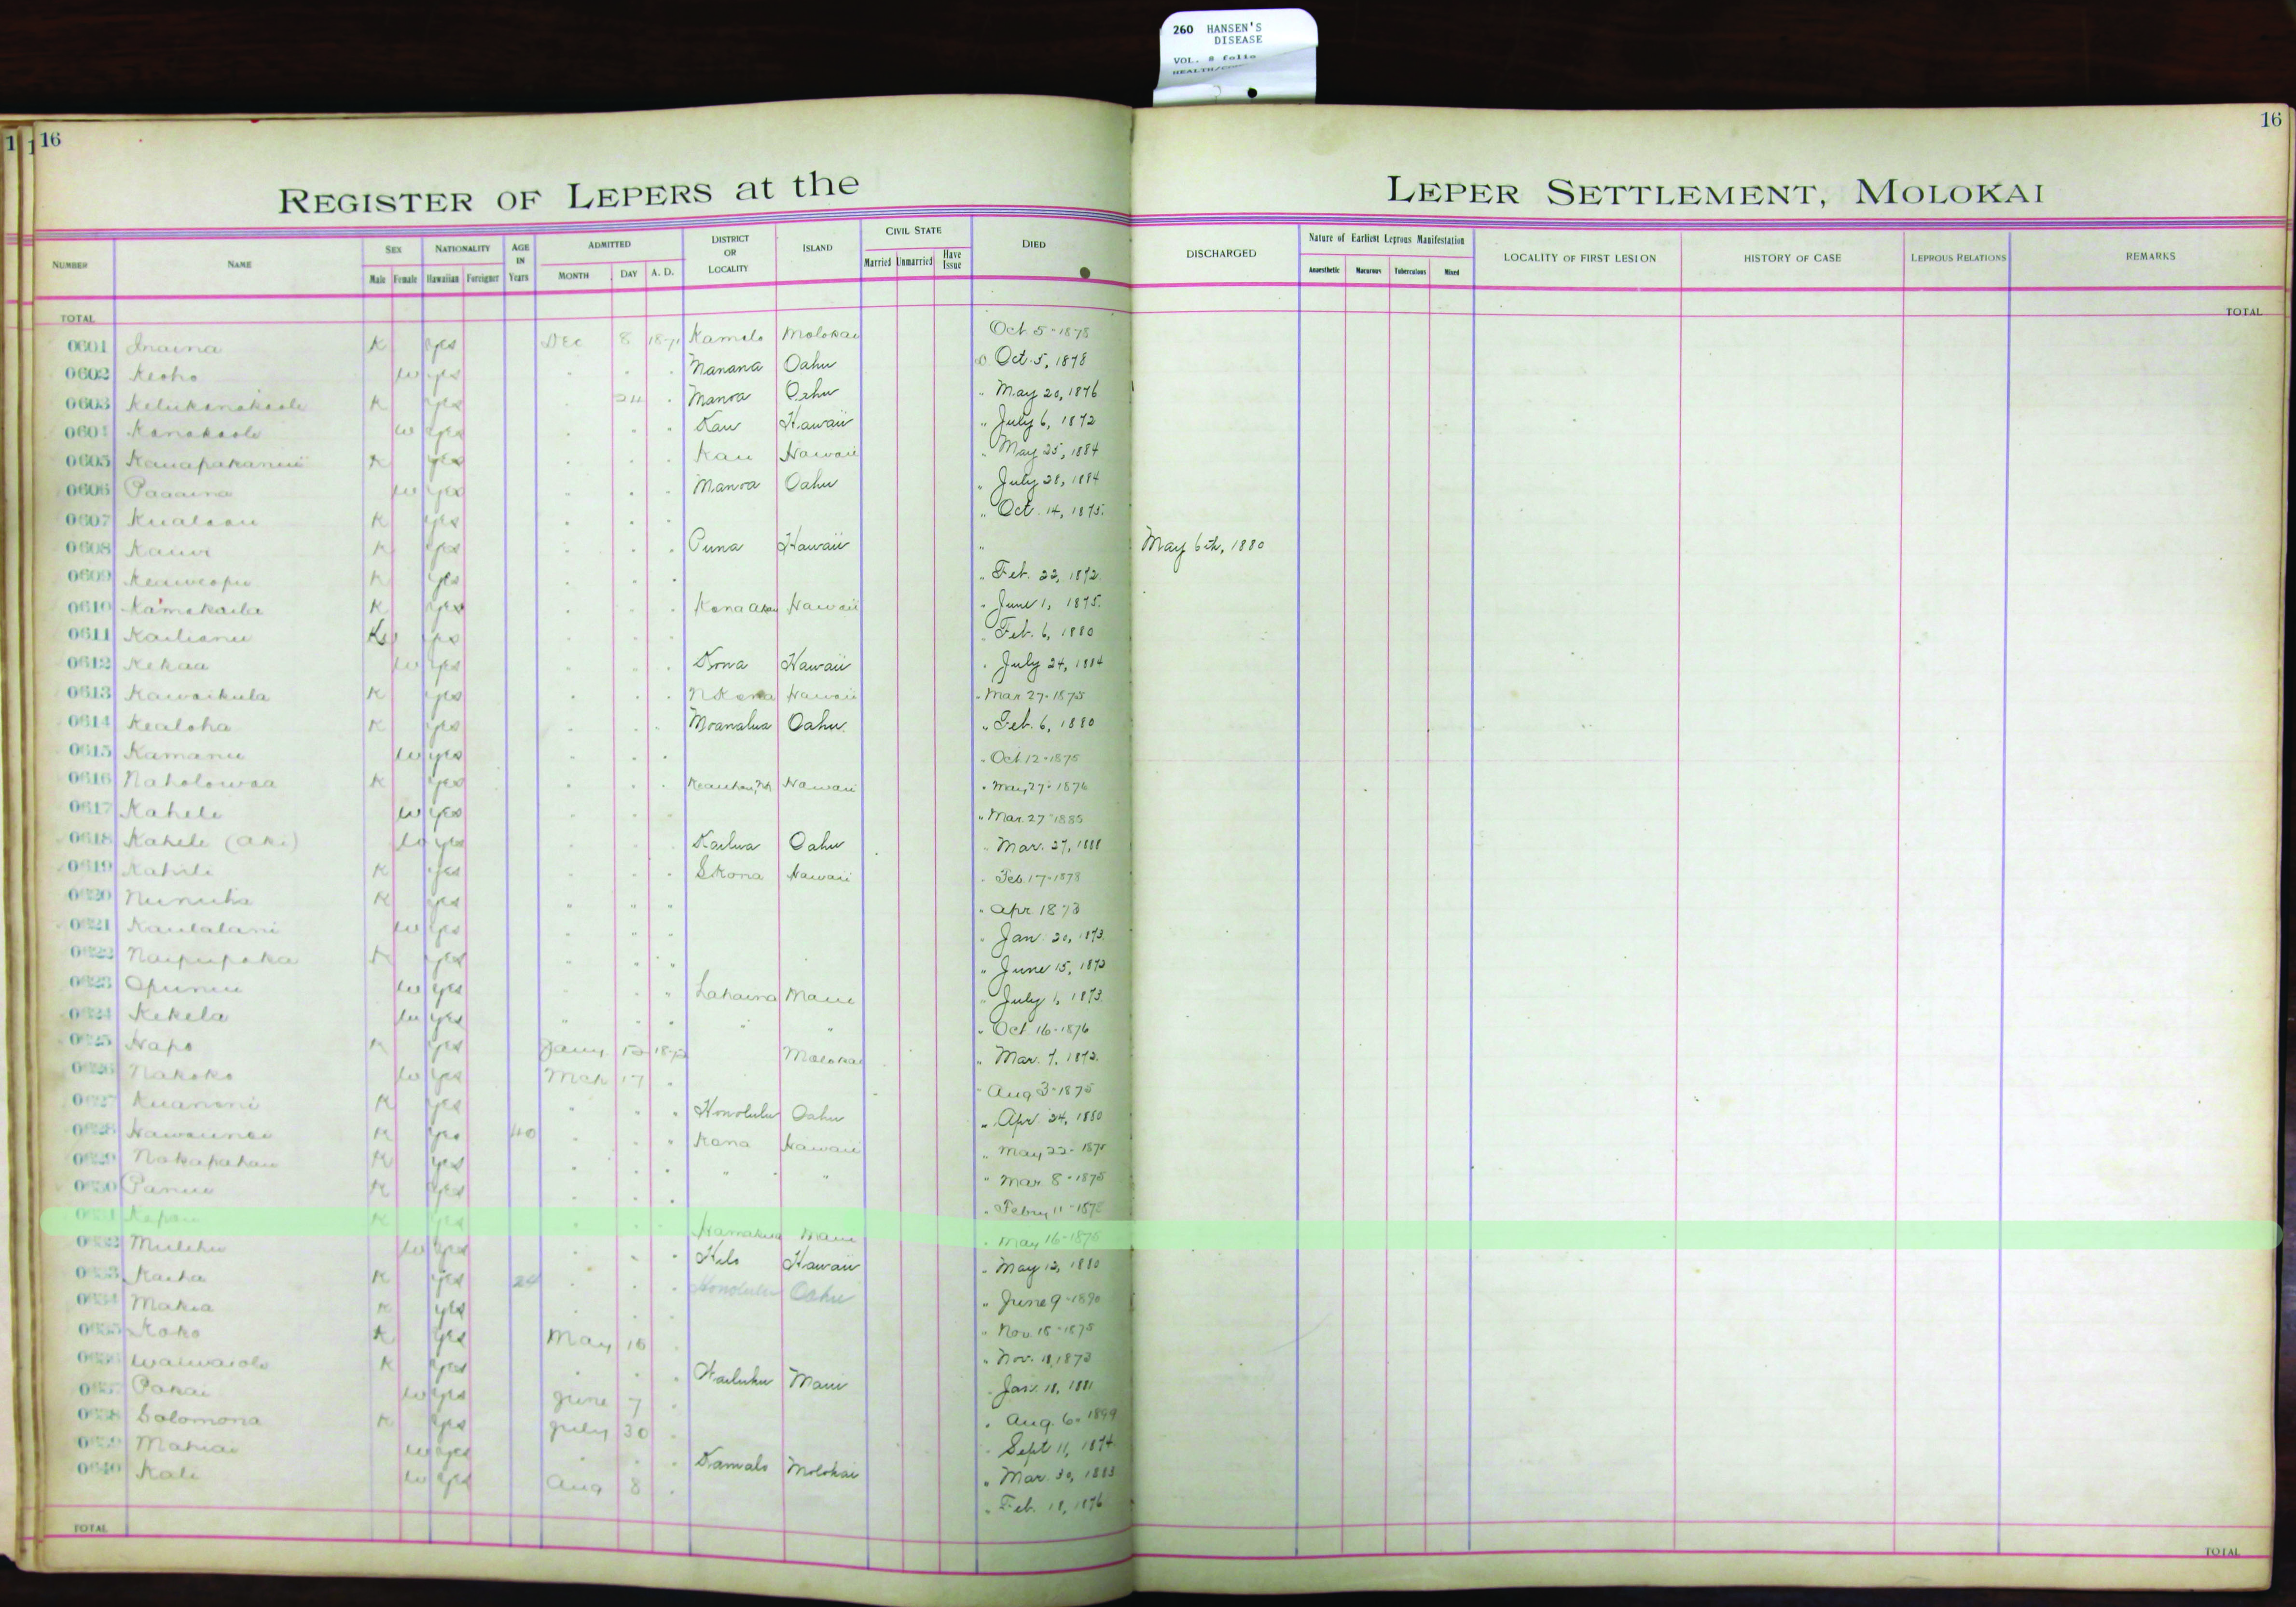 260 HANSEN'S
DISEASE
VOL. 8 folio
16
16
REGISTER OF LEPERS at the LEPER SETTLEMENT, MOLOKAI
NUMBER NAME SEX NATIONALITY AGE IN Years ADMITTED DISTRICT OR LOCALITY ISLAND CIVIL STATE DIED DISCHARGED Nature of Earliest Leprous Manifestation LOCALITY OF FIRST LESION HISTORY OF CASE LEPROUS RELATIONS REMARKS
Male Female Hawaiian Foreigner MONTH DAY A. D. Married Unmarried Have Issue Anaesthetic Macurous Tuberculous Mixed
TOTAL TOTAL
0601 Inaina K yes Dec 8 1871 Kamalo Molokai Oct 5-1878
0602 Keoho w yes Manana Oahu D Oct. 5, 1878
0603 K yes 24 Manoa Oahu " May 20, 1876
0604 Kanakaole w yes Kau Hawaii " July 6, 1872
0605 K yes Kau Hawaii " May 25, 1884
0606 Paaaina w yes Manoa Oahu " July 28, 1884
0607 K yes " Oct. 14, 1875.
0608 Kauwi K yes Puna Hawaii " May 6th, 1880
0609 Keaweopu K yes " Feb. 22, 1872.
0610 Kamakaila K yes Kona Akau Hawaii " June 1, 1875.
0611 Kailianu yes Feb. 6, 1880
0612 Kekaa w yes Kona Hawaii " July 24, 1884
0613 Kawaikula K yes N Kona Hawaii " Mar 27-1875
0614 Kealoha K yes Moanalua Oahu " Feb. 6, 1880
0615 Kamanu w yes " Oct 12-1875
0616 Naholowaa K yes Keauhou, Hawaii " May 27-1876
0617 Kahele w yes " Mar. 27-1885
0618 Kahele (Aki) w yes Kailua Oahu " Mar. 27, 1888
0619 K yes S Kona Hawaii " Feb. 17-1878
0620 K yes " " " " Apr 1873
0621 Kaulalani w yes " Jan. 20, 1873.
0622 Naipupaka K yes " June 15, 1873
0623 Opunui w yes Lahaina Maui " July 1, 1873.
0624 Kekela w yes " " " Oct 16-1876
0625 Hapo K yes Jany 1872 Molokai " Mar. 7, 1872.
0626 Nakoko w yes Mch 17 " Aug 3-1875
0627 Kuanoni K yes Honolulu Oahu " Apr. 24, 1880
0628 K yes 40 Kona Hawaii " May 22-
0629 K yes " " " Mar 8-1875
0630 Panui K yes " Febry 11-
K yes Hamakua Maui " May 16-1875
w yes Hilo Hawaii " May 12, 1880
Kaiha K yes 24 Honolulu Oahu " June 9-1890
Makia K yes " Nov. 15-1875
Koko K yes May 15 " Nov. 11, 1873
Waiwaiole K yes Wailuku Maui Jan. 18, 1881
Pakai w yes June 7 " Aug. 6, 1899
Solomona K yes July 30 Sept 11, 1874
Mahiai w yes Kamalo Molokai " Mar. 30, 1883
0640 Kali w yes Aug 8 " Feb. 18, 1876
TOTAL TOTAL